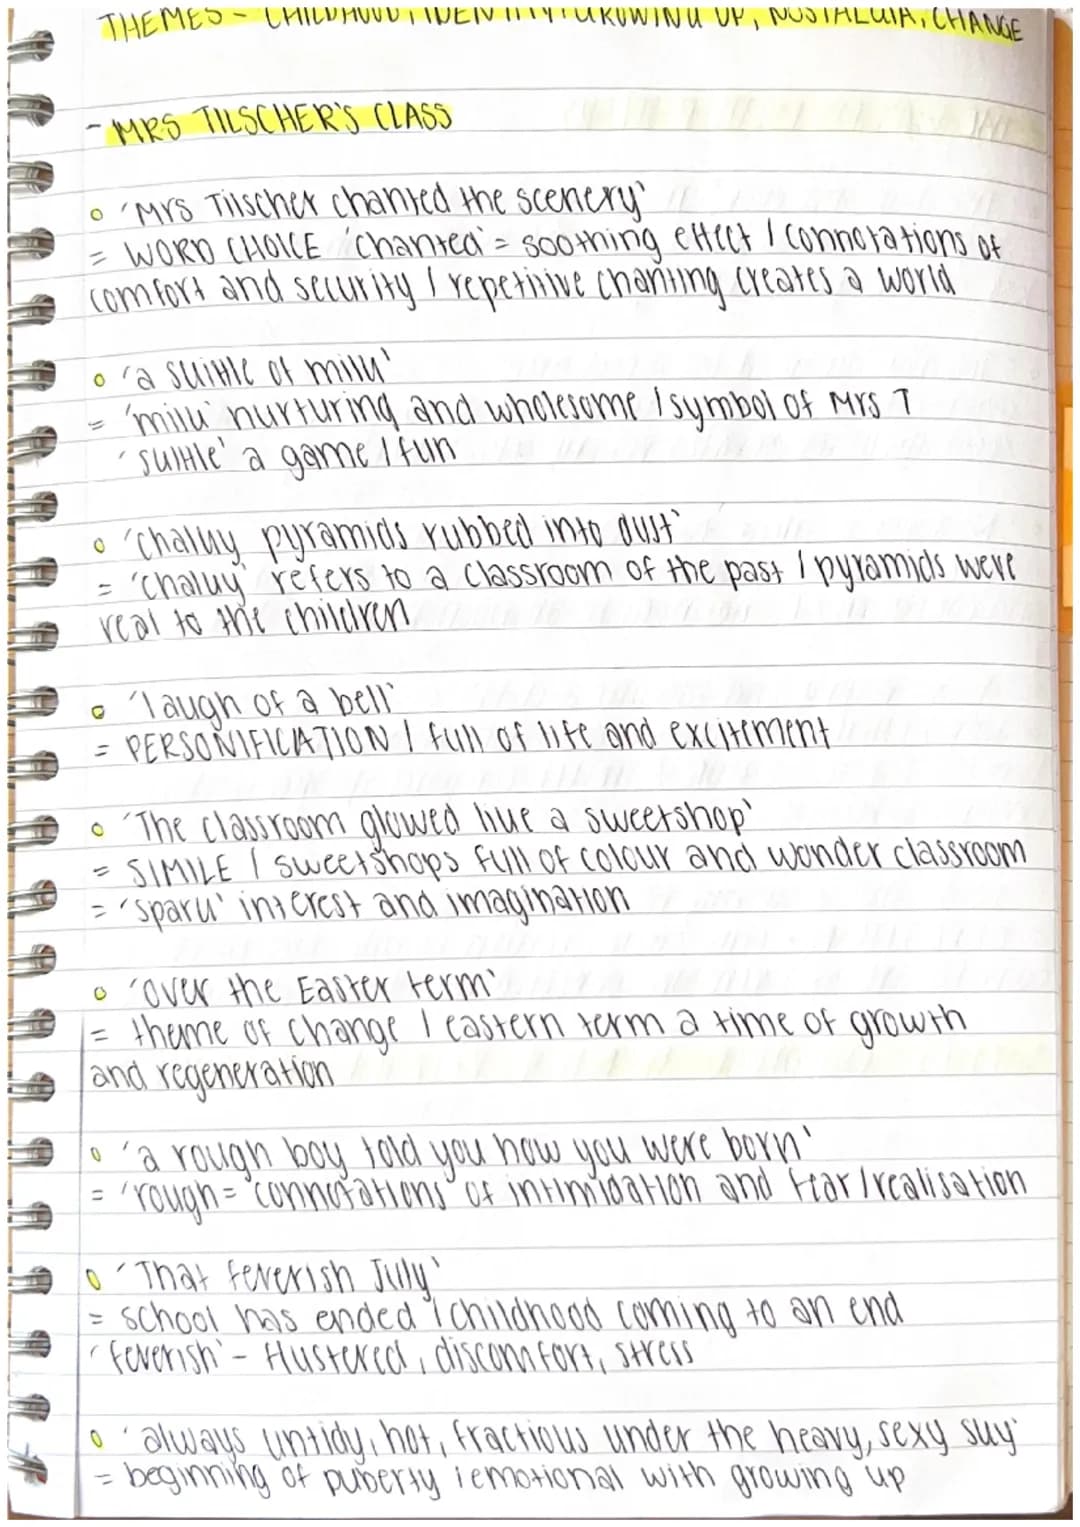 THEMES - CHILDHOOD, IDENTITY, GROWING UP, NOSTALGIA, CHANGE
- MRS TILSCHER'S CLASS
'Mrs Tilscher chanted the scenery'
= WORD CHOICE 'chanted' = soothing effect / connotations of
comfort and security / repetitive chanting creates a world
'a skittle of milk'
= 'milk' nurturing and wholesome / symbol of Mrs T
'skittle' a game / fun
'chalky pyramids rubbed into dust'
= 'chalky' refers to a classroom of the past / pyramids were
real to the children
'laugh of a bell'
= PERSONIFICATION / full of life and excitement
'The classroom glowed like a sweetshop'
= SIMILE / sweetshops full of colour and wonder classroom
= 'spark' interest and imagination
'over the Easter term'
= theme of change / eastern term a time of growth
and regeneration
'a rough boy told you how you were born'
= 'rough = 'connotations' of intimidation and fear/realisation
'That feverish July'
= school has ended / childhood coming to an end
'feverish' - flustered, discomfort, stress
'always untidy, hot, fractious under the heavy, sexy sky'
= beginning of puberty / emotional with growing up